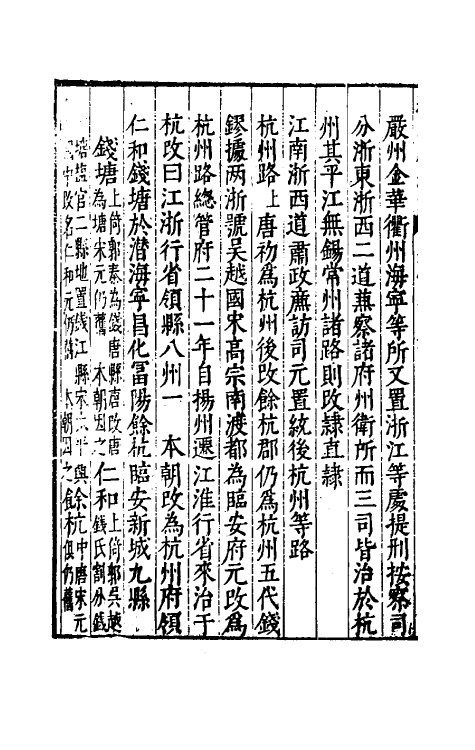 嚴州金華衢州海寧等所又置浙江等處提刑按察司
分浙東浙西二道蕪察諸府州衛所而三司皆治於杭
州其平江無錫常州諸路則改隸直隸
江南浙西道肅政蕪訪司元置統後杭州等路
杭州路上唐初為杭州後改餘杭郡仍為杭州五代錢
鏐據两浙號吳越國宋高宗南渡都為臨安府元改為
杭州路總管府二十一年自揚州遷江淮行省來治于
杭改曰江浙行省領縣八州一　本朝改為杭州府領
仁和錢塘於潛海寧昌化富陽餘杭臨安新城九縣
錢塘上倚郭秦為錢唐縣唐改唐為塘宋元仍舊　本朝因之仁和上倚郭吳越錢氏割分錢
塘鹽官二縣地置錢江縣宋太平興國中改名仁和元仍舊　本朝因之餘杭中唐宋元俱仍舊